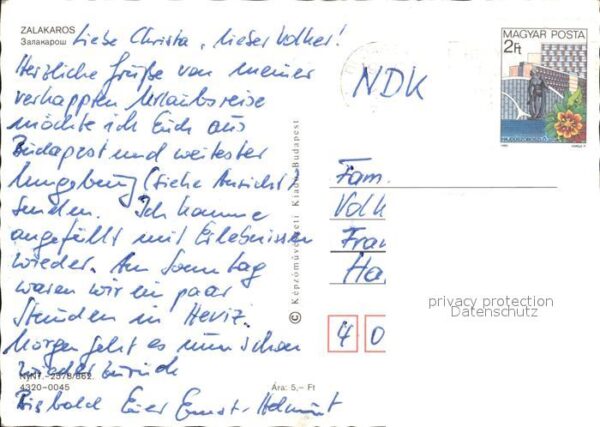 ZALAKAROS
Залакарош
Liebe Christa, lieber Volker!
Herzliche Grüße von meiner
verkappten Urlaubsreise
möchte ich Euch aus
Budapest und weitester
Umgebung (siehe Ansicht)
senden. Ich komme
angefüllt mit Erlebnissen
wieder. Am Sonntag
waren wir ein paar
Stunden in Heviz.
Morgen geht es nun schon
wieder zurück
Bis bald Euer Ernst-Helmut
NYNT.-2578/862.
4320-0045
Ára: 5,- Ft
© Képzőművészeti Kiadó Budapest
MAGYAR POSTA
2Ft
HAJDÚSZOBOSZLÓ
NDK
Fam.
Volk
Fran
Ha
4 0
privacy protection
Datenschutz